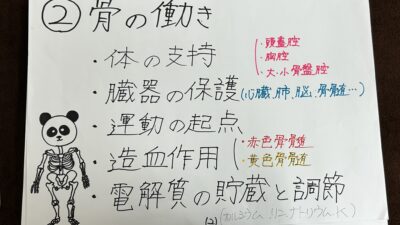 ② 骨の働き
・体の支持
・頭蓋腔
・胸腔
・大・小骨盤腔
・臓器の保護(心臓、肺、脳、骨髄…)
・運動の起点
・造血作用
・赤色骨髄
・黄色骨髄
・電解質の貯蔵と調節
(カルシウム、リン、ナトリウム、K)